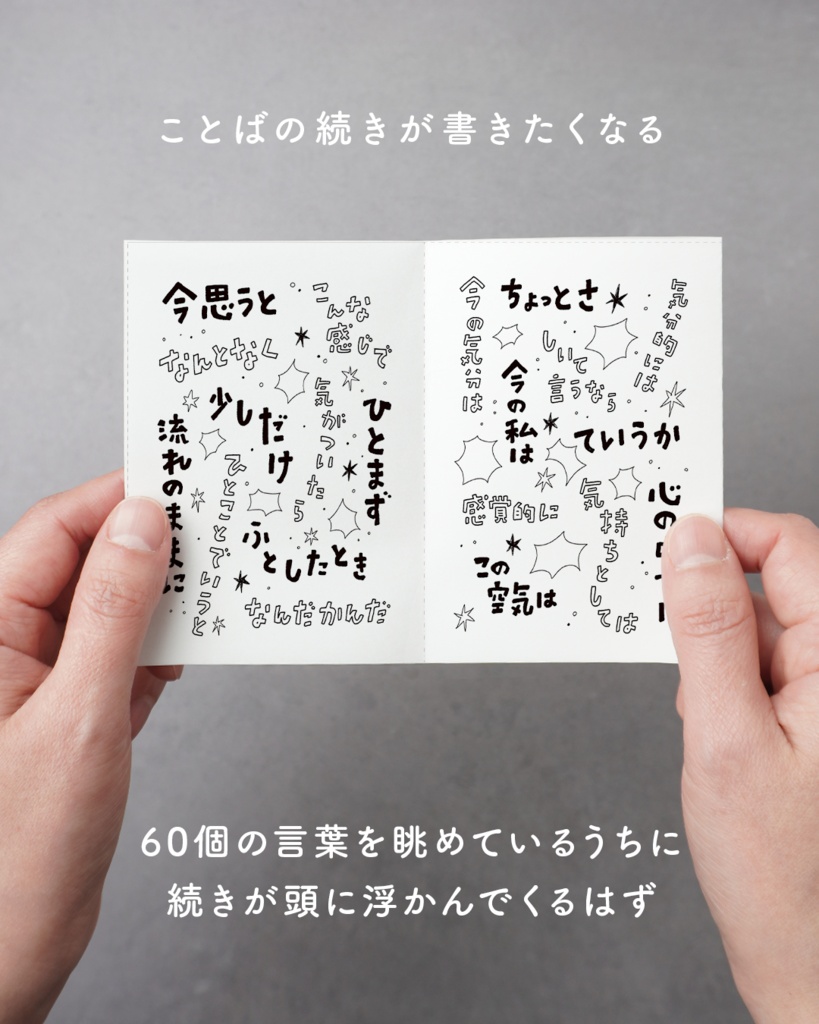 ことばの続きが書きたくなる
今思うと
こんな感じで
なんとなく
少しだけ
気がついたら
ひとまず
流れのままに
ひとことでいうと
ふとしたとき
なんだかんだ
今の気分は
ちょっとさ
気分的には
しいて言うなら
今の私は
ていうか
感覚的に
気持ちとしては
心の
この空気は
60個の言葉を眺めているうちに
続きが頭に浮かんでくるはず